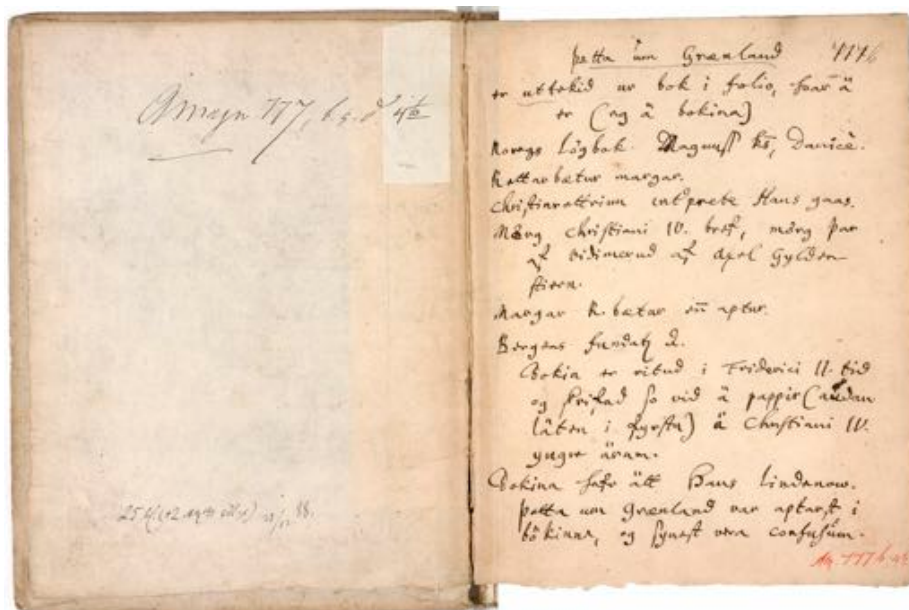 AMagn 777, b. 4to
25 bl (+2 nyere bll.) 88.
þetta um Grænland 777b
er uttekid ur bok i folio, sem ä
er (og ä bokina)
Noregs lögbok. Magnuss ks, Danicè.
Rettarbætur margar.
Christinrettrinn interprete Hans gaas.
Mörg Christiani IV. bref, mörg þar
af vidimerud af Axel Gylden-
stiern.
Margar R. bætur enn aptur.
Bergens fundatz &.
Bokin er ritud i Friderici II. tid
og skrifad so vid ä pappir (audan
läten i fyrstu) ä Christiani IV.
yngre ärum.
Bokina hefr ätt Hans Lindenow.
þetta um Grænland var aptarst i
bökinne, og synest vera confusum.
AM. 777 b, 4to